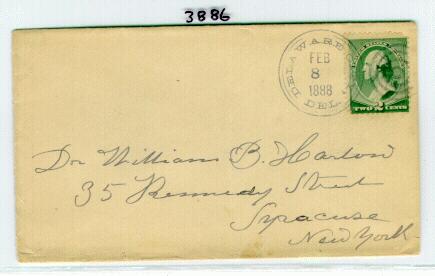 3886
DELAWARE C
FEB
8
1888
DEL.
UNITED STATES POSTAGE
2
TWO CENTS
Dr William B. Harlow
35 Kennedy Street
Syracuse
New York